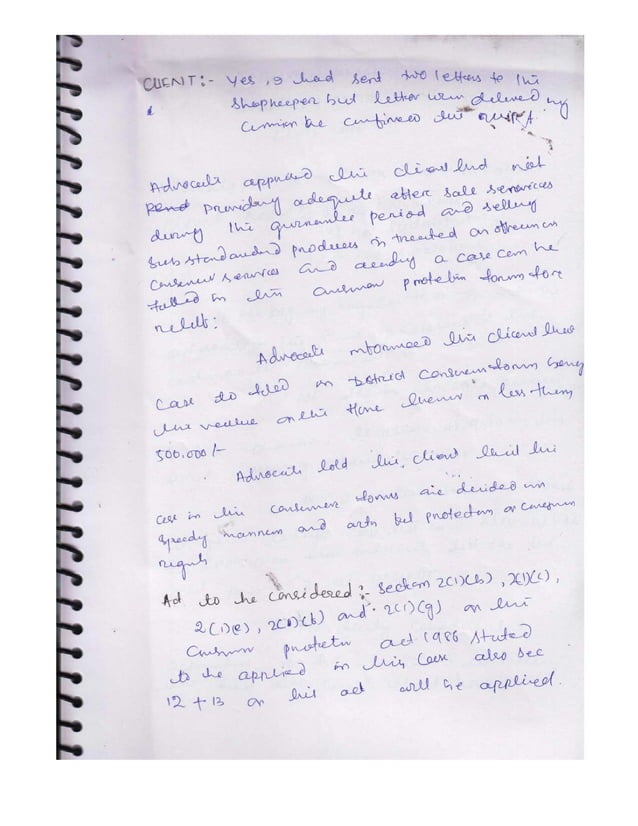 CLIENT:- Yes, I had sent two letters to the
shopkeeper but letter were delivered my
be confirmed the
Advocate apprised the client that not
providing adequate after sale services
during the guarantee period and selling
sub standard products is treated an
consumer services and a case can be
filed in the consumer protection forum for
relief.
Advocate informed the client that
Case to filed in District Consumer forum being
the value on the is less than
500.000/-
Advocate told the client that the
case in the consumer forums are decided in
speedy manner and protection of consumer
rights
Act to be considered:- section 2(1)(b), 2(1)(c),
2(1)(e), 2(1)(b) and 2(1)(g) on the
Consumer protection act 1986 stated
to be applied in this case also sec
12 + 13 on this act will be applied.